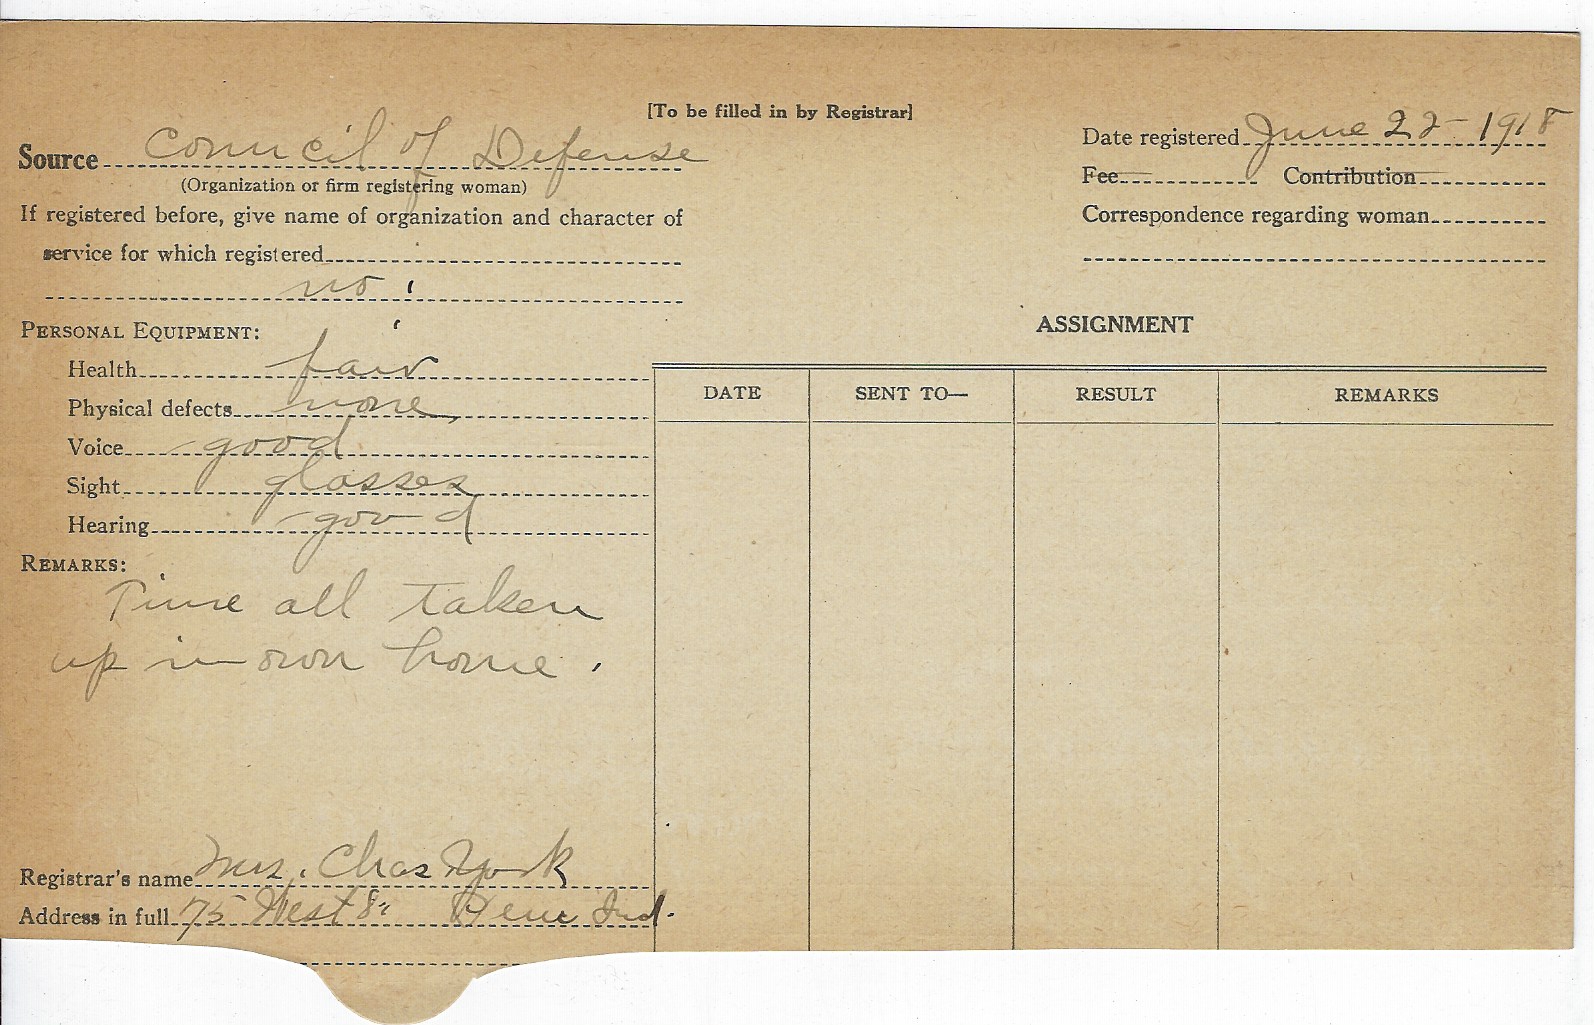 [To be filled in by Registrar]
Source Council of Defense
(Organization or firm registering woman)
If registered before, give name of organization and character of
service for which registered
no
Personal Equipment:
Health fair
Physical defects none
Voice good
Sight glasses
Hearing good
Remarks:
Time all taken
up in own home.
Registrar's name Mrs. Chas York
Address in full 75 West 8" Peru Ind.
Date registered June 22 - 1918
Fee Contribution
Correspondence regarding woman
ASSIGNMENT
DATE SENT TO— RESULT REMARKS